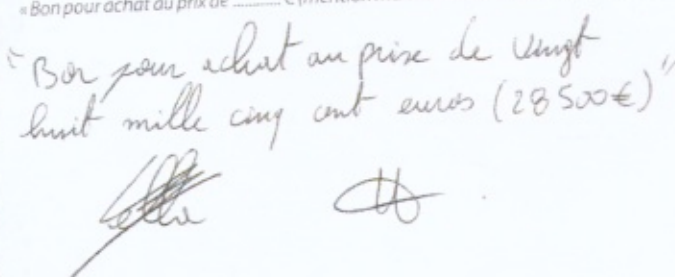 « Bon pour achat au prix de ............ € (mention
"Bon pour achat au prise de vingt
huit mille cinq cent euros (28500€)"